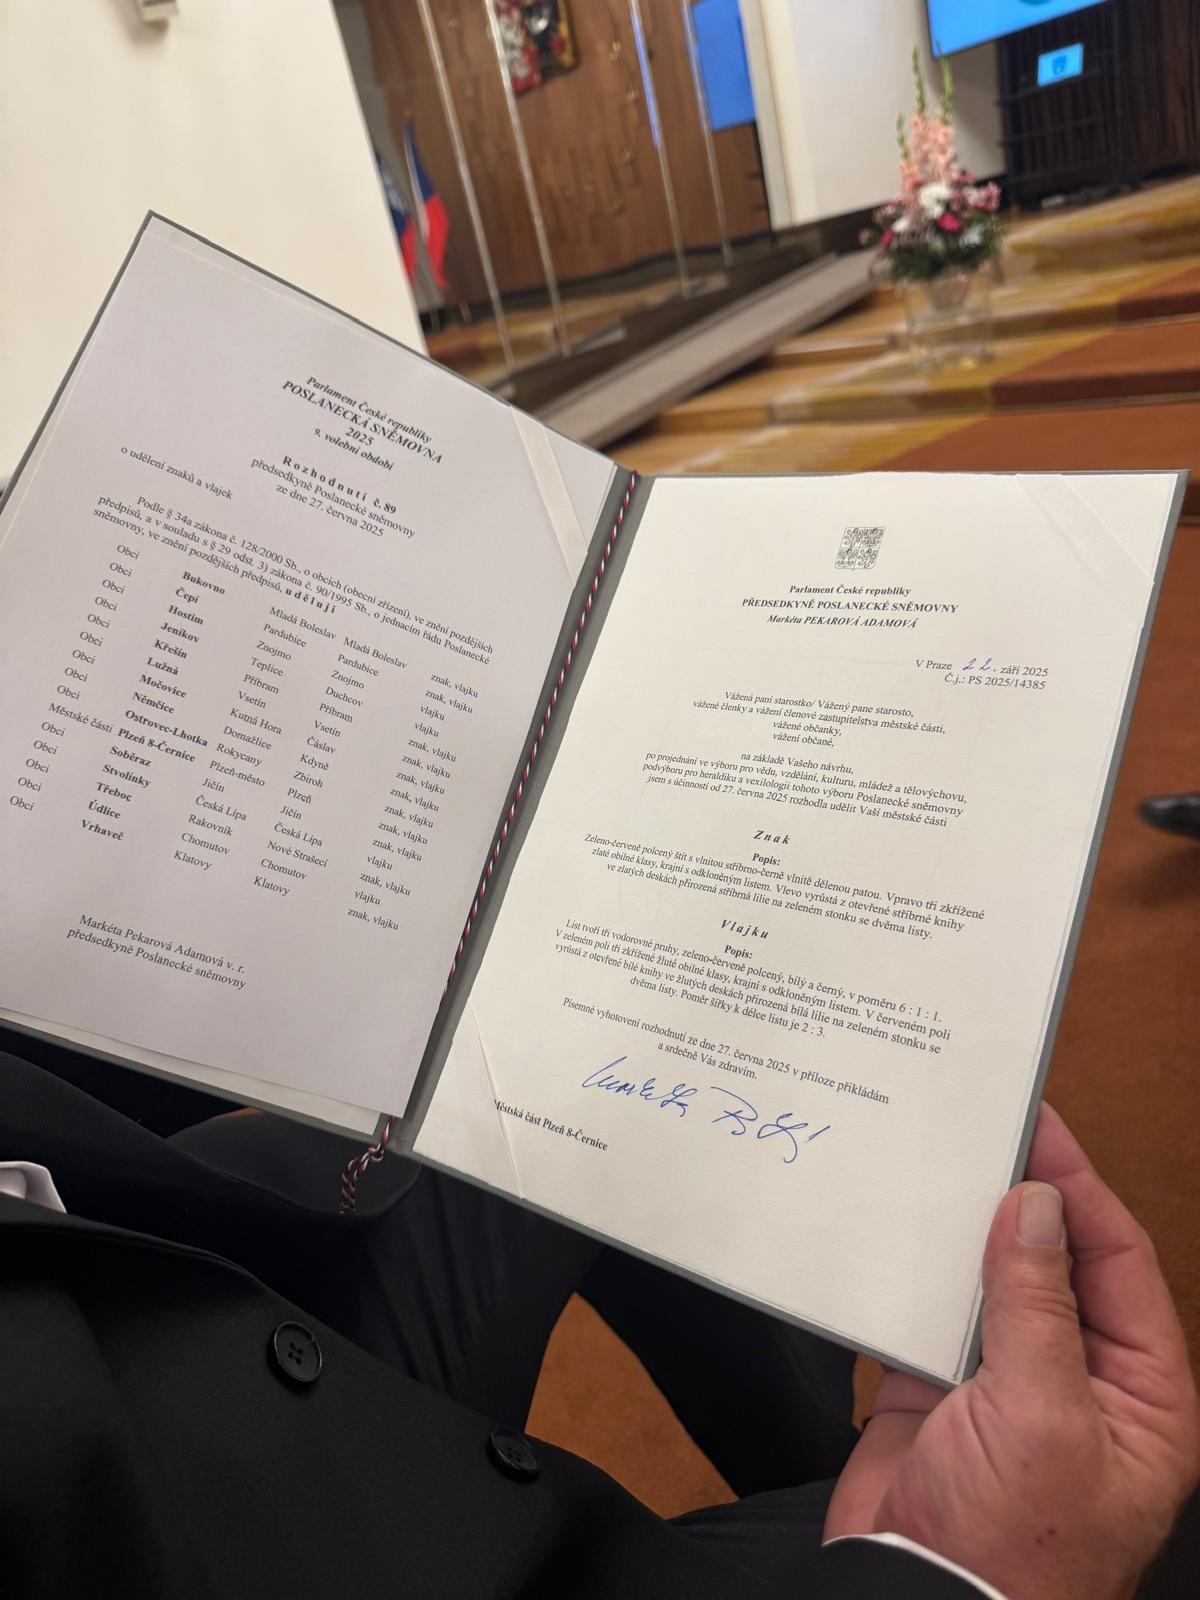 Parlament České republiky
POSLANECKÁ SNĚMOVNA
2025
9. volební období
Rozhodnutí č. 89
předsedkyně Poslanecké sněmovny
ze dne 27. června 2025
o udělení znaků a vlajek
Podle § 34a zákona č. 128/2000 Sb., o obcích (obecní zřízení), ve znění pozdějších
předpisů, a v souladu s § 29 odst. 3) zákona č. 90/1995 Sb., o jednacím řádu Poslanecké
sněmovny, ve znění pozdějších předpisů, uděluji
Obci Bukovno Mladá Boleslav Mladá Boleslav znak, vlajku
Obci Čepí Pardubice Pardubice znak, vlajku
Obci Hostim Znojmo Znojmo vlajku
Obci Jeníkov Teplice Duchcov vlajku
Obci Křešín Příbram Příbram znak, vlajku
Obci Lužná Vsetín Vsetín znak, vlajku
Obci Močovice Kutná Hora Čáslav znak, vlajku
Obci Němčice Domažlice Kdyně znak, vlajku
Obci Ostrovec-Lhotka Rokycany Zbiroh znak, vlajku
Městské části Plzeň 8-Černice Plzeň-město Plzeň znak, vlajku
Obci Soběraz Jičín Jičín znak, vlajku
Obci Stvolínky Česká Lípa Česká Lípa vlajku
Obci Třeboc Rakovník Nové Strašecí znak, vlajku
Obci Údlice Chomutov Chomutov vlajku
Obci Vrhaveč Klatovy Klatovy znak, vlajku
Markéta Pekarová Adamová v. r.
předsedkyně Poslanecké sněmovny
Parlament České republiky
PŘEDSEDKYNĚ POSLANECKÉ SNĚMOVNY
Markéta PEKAROVÁ ADAMOVÁ
V Praze 22. září 2025
Č.j.: PS 2025/14385
Vážená paní starostko/ Vážený pane starosto,
vážené členky a vážení členové zastupitelstva městské části,
vážené občanky,
vážení občané,
na základě Vašeho návrhu,
po projednání ve výboru pro vědu, vzdělání, kulturu, mládež a tělovýchovu,
podvýboru pro heraldiku a vexilologii tohoto výboru Poslanecké sněmovny
jsem s účinností od 27. června 2025 rozhodla udělit Vaší městské části
Znak
Popis:
Zeleno-červeně polcený štít s vlnitou stříbrno-černě vlnitě dělenou patou. Vpravo tři zkřížené
zlaté obilné klasy, krajní s odkloněným listem. Vlevo vyrůstá z otevřené stříbrné knihy
ve zlatých deskách přirozená stříbrná lilie na zeleném stonku se dvěma listy.
Vlajku
Popis:
List tvoří tři vodorovné pruhy, zeleno-červeně polcený, bílý a černý, v poměru 6 : 1 : 1.
V zeleném poli tři zkřížené žluté obilné klasy, krajní s odkloněným listem. V červeném poli
vyrůstá z otevřené bílé knihy ve žlutých deskách přirozená bílá lilie na zeleném stonku se
dvěma listy. Poměr šířky k délce listu je 2 : 3.
Písemné vyhotovení rozhodnutí ze dne 27. června 2025 v příloze přikládám
a srdečně Vás zdravím.
Městská část Plzeň 8-Černice